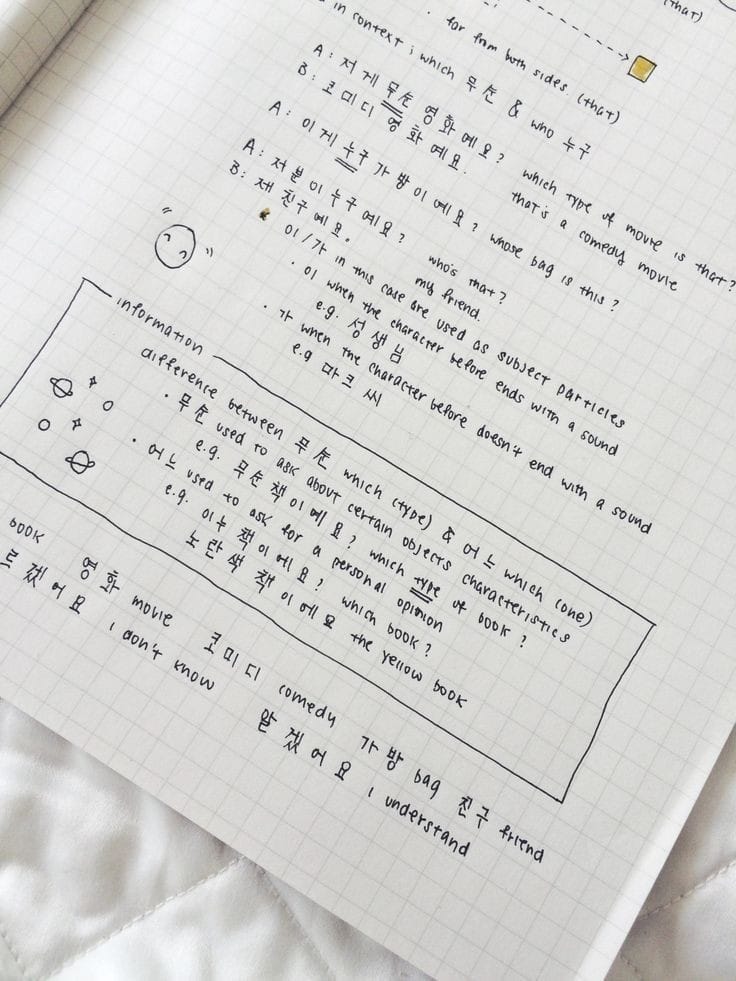 (that)
. far from both sides. (that)
in context ; which 무슨 & who 누구
A : 저게 무슨 영화예요? which type of movie is that?
B : 코미디 영화예요. that's a comedy movie
A : 이게 누구 가방이에요? whose bag is this?
A : 저분이 누구예요? who's that?
B : 재 친구예요. my friend.
이/가 in this case are used as subject particles
· 이 when the character before ends with a sound
e.g. 성생님
· 가 when the character before doesn't end with a sound
e.g 마크 씨
information
difference between 무슨 which (type) & 어느 which (one)
· 무슨 used to ask about certain objects characteristics
e.g. 무슨 책이에요? which type of book?
· 어느 used to ask for a personal opinion
e.g. 이누 책이에요? which book?
노란색 책이에요 the yellow book
book 영화 movie 코미디 comedy 가방 bag 친구 friend
르겠어요 i don't know 알겠어요 i understand